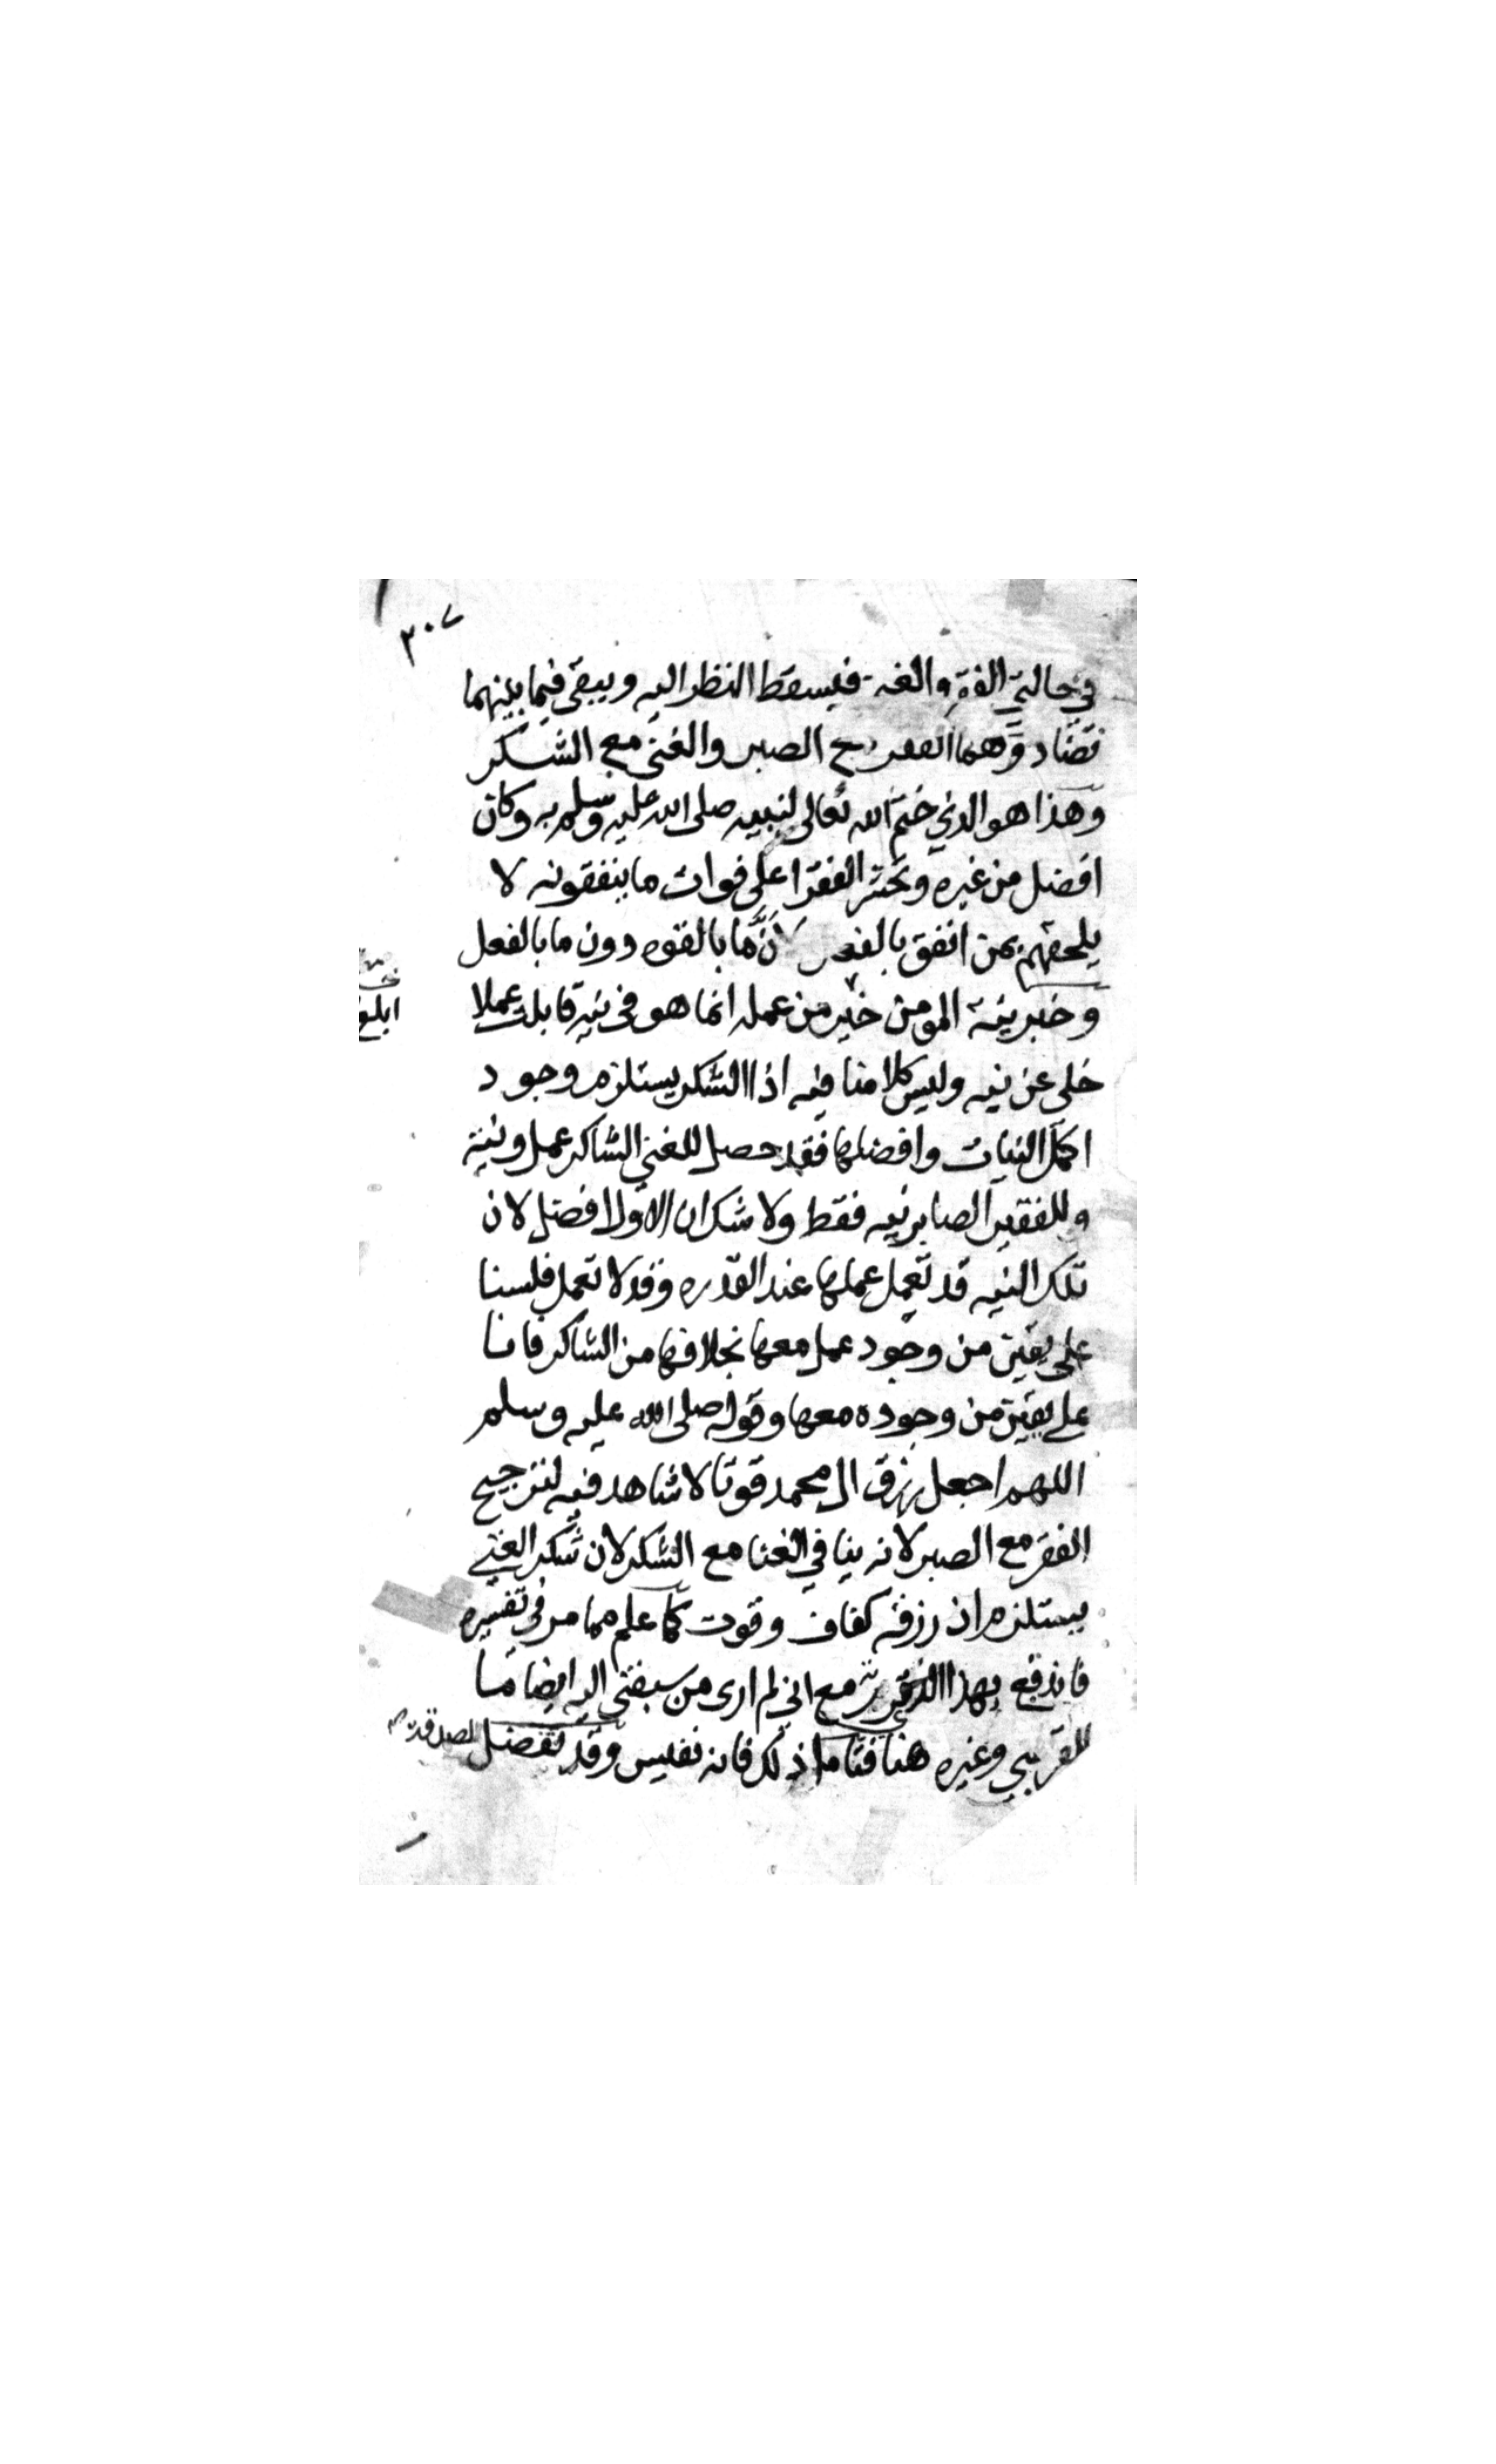 ٣٠٧
في حالتي الفقر والغنى فيسقط النظر اليه ويبقى فيما بينهما
تضاد وهما الفقر مع الصبر والغنى مع الشكر
وهذا هو الذي ختم الله تعالى لنبيه صلى الله عليه وسلم به وكان
افضل من غيره وتحسر الفقرا على فوات ما ينفقونه لا
يلحقهم بمن انفق بالفعل لأنَّ ما بالقوه دون ما بالفعل
وخبر نية المومن خير من عمله انما هو في نية قابلت عملا
خلى عن نيه وليس كلامنا فيه اذ الشكر يستلزم وجود
اكمل النيات وافضلها فقد حصل للغني الشاكر عمل ونية
وللفقير الصابر نيه فقط ولا شك ان الاول افضل لان
تلك النيه قد تعمل عملها عند القدره وقد لا تعمل فلسنا
على يقين من وجود عمل معها بخلافها من الشاكر فانا
على يقين من وجوده معها وقوله صلى الله عليه وسلم
اللهم اجعل رزق ال محمد قوتا لا شاهد فيه لترجيح
الفقر مع الصبر لانه ينافي الغنا مع الشكر لان شكر الغني
يستلزم ان رزقه كفاف وقوت كما علم مما مر في تفسيره
فاندفع بهذا الذي قررته مع اني لم ارى من سبقني اليه ايضا ما
للقرطبي وغيره هنا فتامل ذلك فانه نفيس وقد تفضل
ابلغ